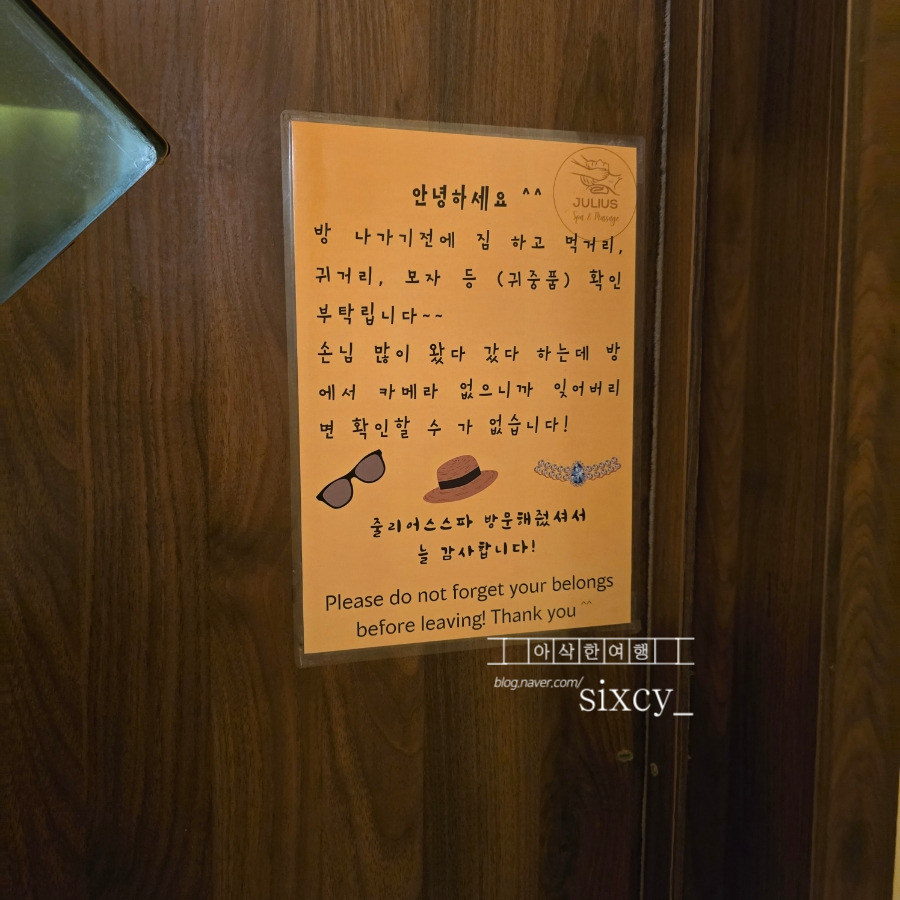 JULIUS
Spa & Massage
안녕하세요 ^^
방 나가기전에 짐 하고 먹거리,
귀거리, 모자 등 (귀중품) 확인
부탁립니다~~
손님 많이 왔다 갔다 하는데 방
에서 카메라 없으니까 잊어버리
면 확인할 수 가 없습니다!
줄리어스스파 방문해줬셔서
늘 감사합니다!
Please do not forget your belongs
before leaving! Thank you ^^
아삭한여행
blog.naver.com/
sixcy_